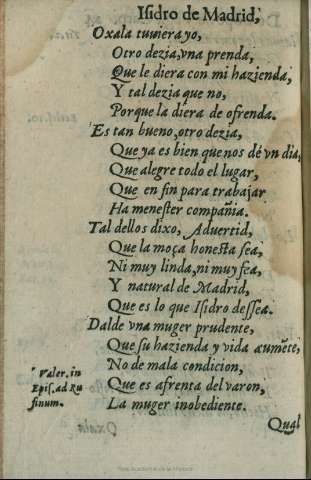 Isidro de Madrid,
Oxala tuuiera yo,
Otro dezia, vna prenda,
Que le diera con mi hazienda,
Y tal dezia que no,
Porque la diera de ofrenda.
Es tan bueno, otro dezia,
Que ya es bien que nos dè vn dia,
Que alegre todo el lugar,
Que en fin para trabajar
Ha menester compañia.
Tal dellos dixo, Aduertid,
Que la moça honesta sea,
Ni muy linda, ni muy fea,
Y natural de Madrid,
Que es lo que Isidro dessea.
Dalde vna muger prudente,
Que su hazienda y vida aumẽte,
No de mala condicion,
Que es afrenta del varon,
La muger inobediente.
Valer. in
Epis. ad Ru
finum.
Qual